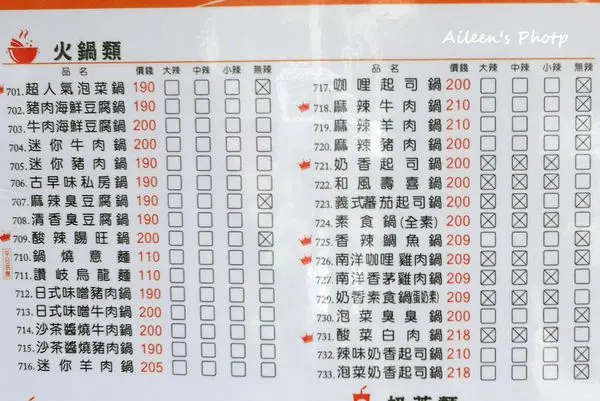 Aileen's Photp
火鍋類
品名 價錢 大辣 中辣 小辣 無辣
701. 超人氣泡菜鍋 190
702. 豬肉海鮮豆腐鍋 190
703. 牛肉海鮮豆腐鍋 200
704. 迷你牛肉鍋 200
705. 迷你豬肉鍋 190
706. 古早味私房鍋 190
707. 麻辣臭豆腐鍋 190
708. 清香臭豆腐鍋 190
709. 酸辣腸旺鍋 200
710. 鍋燒意麵 110
711. 讚岐烏龍麵 110
712. 日式味噌豬肉鍋 190
713. 日式味噌牛肉鍋 200
714. 沙茶醬燒牛肉鍋 200
715. 沙茶醬燒豬肉鍋 190
716. 迷你羊肉鍋 205
品名 價錢 大辣 中辣 小辣 無辣
717. 咖哩起司鍋 200
718. 麻辣牛肉鍋 210
719. 麻辣羊肉鍋 210
720. 麻辣豬肉鍋 200
721. 奶香起司鍋 200
722. 和風壽喜鍋 200
723. 義式蕃茄起司鍋 200
724. 素食鍋(全素) 200
725. 香辣鯛魚鍋 209
726. 南洋咖哩雞肉鍋 209
727. 南洋香茅雞肉鍋 209
729. 奶香素食鍋(蛋奶素) 209
730. 泡菜臭臭鍋 200
731. 酸菜白肉鍋 218
732. 辣味奶香起司鍋 210
733. 泡菜奶香起司鍋 218